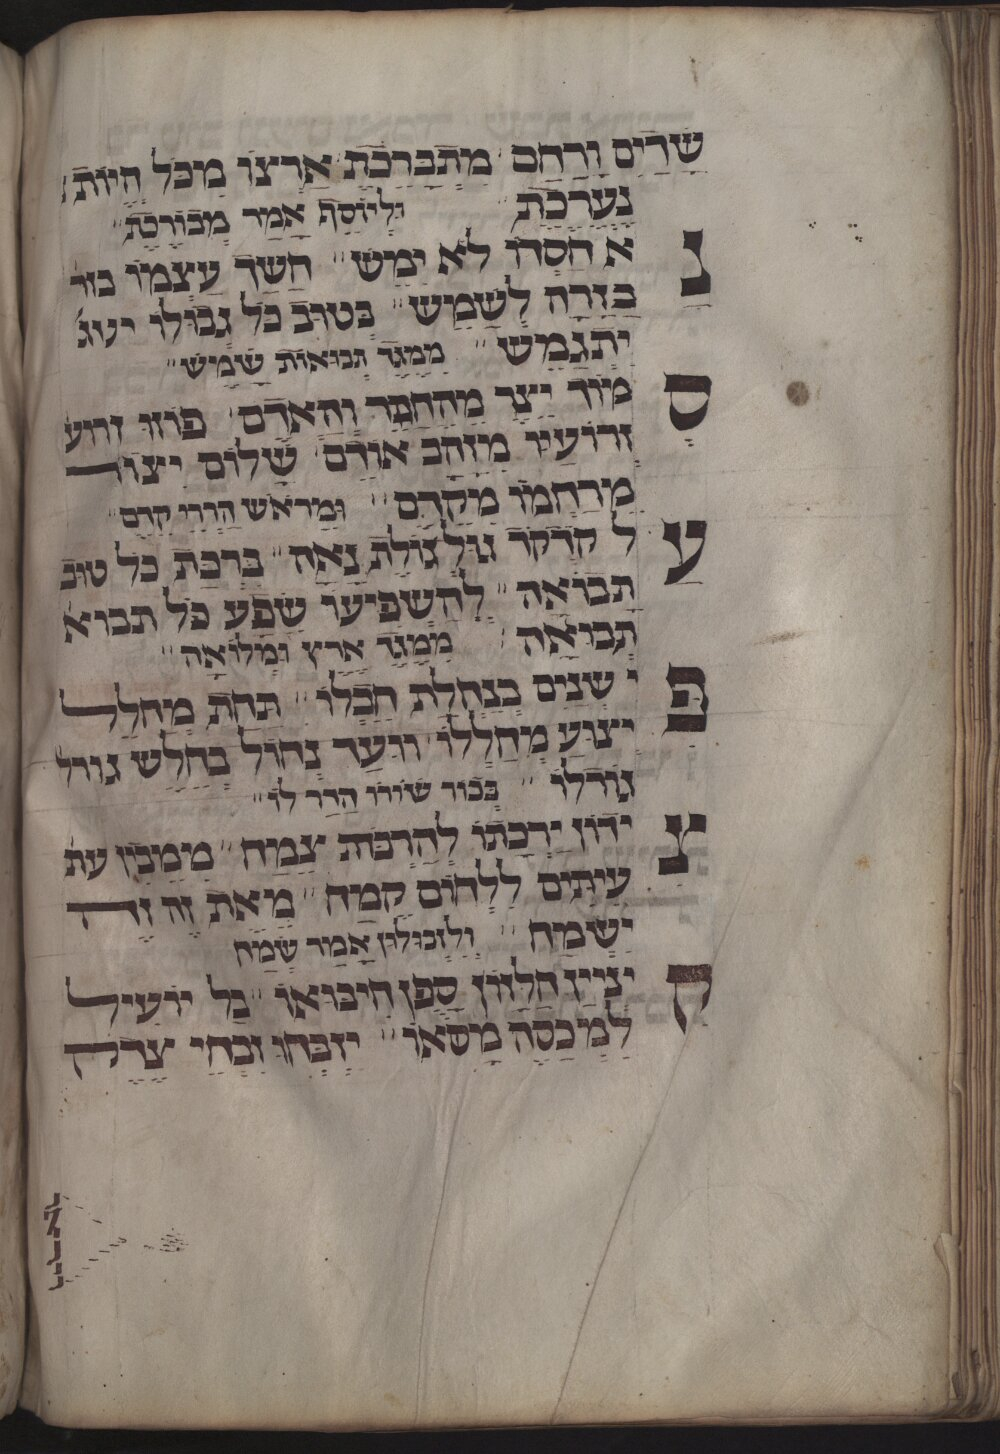 שָׂרַיִם וְרֶחֶם מְתְבָּרֶכֶת אַרְצוֹ מִכָּל חַיּוֹת
נֶעֱרֶכֶת וּלְיוֹסֵף אָמַר מְבוֹרֶכֶת
נ א חַסְדּוֹ לֹא יָמֵשׁ חֹשֶׁךְ עַצְמוֹ כור
בְּזָרָה לְשֶׁמֶשׁ בְּטוּב כֹּל גְבוּלוֹ יעוג
יִתְגַּמֵּשׁ מִמֶּגֶד תְּבוּאוֹת שָׁמֶשׁ
ס מוֹר יֵצֶר מֵהֵחְפֵּר וְהָאְדַּם פוזו זרוע
זְרוֹעָיו מִזָּהָב אוֹדֶם שָׁלוֹם יצור
מֵרַחְמוֹ מִקֶּדֶם וּמֵרֹאשׁ הַרְרֵי קֶדֶם
ע ל קַרְקַר גּוּלְגוֹלֶת נָאָה בִּרְכַּת כֹּל טוּב
תְּבוֹאָה לְהַשְׁפִּיעוֹ שֶׁפַע כֹּל תבוא
תְּבוּאָה מִמֶּגֶד אֶרֶץ וּמְלוֹאָה
פ י שְׁנַיִם בְּנַחֲלַת חַבְלוֹ תַּחַת מְחַלֵל
יְצוּעַ מְחַלְלוֹ וועד נָחוֹל בְּחֵלֶשׁ גורל
גּוֹרָלוֹ בְּכוֹר שׁוֹרוֹ הָדָר לוֹ
צ ידוֹן יַרְכָתוֹ לְהַרְבּוֹת צֶמַח מִמֵּבִין עת
עִיתִּים לִלְחוֹם קֶמַח מֵאֵת זֶה וָזֶה
יִשְׂמַח וְלִזְבוּלוּן אָמַר שְׂמַח
ק יצִין חִלָּזוֹן סָפַן חִיבּוּאוֹ בַּל יוֹעִיל
לְמִכְסֶה מִסְאוֹ יִזְבְּחוּ זִבְחֵי צֶדֶק